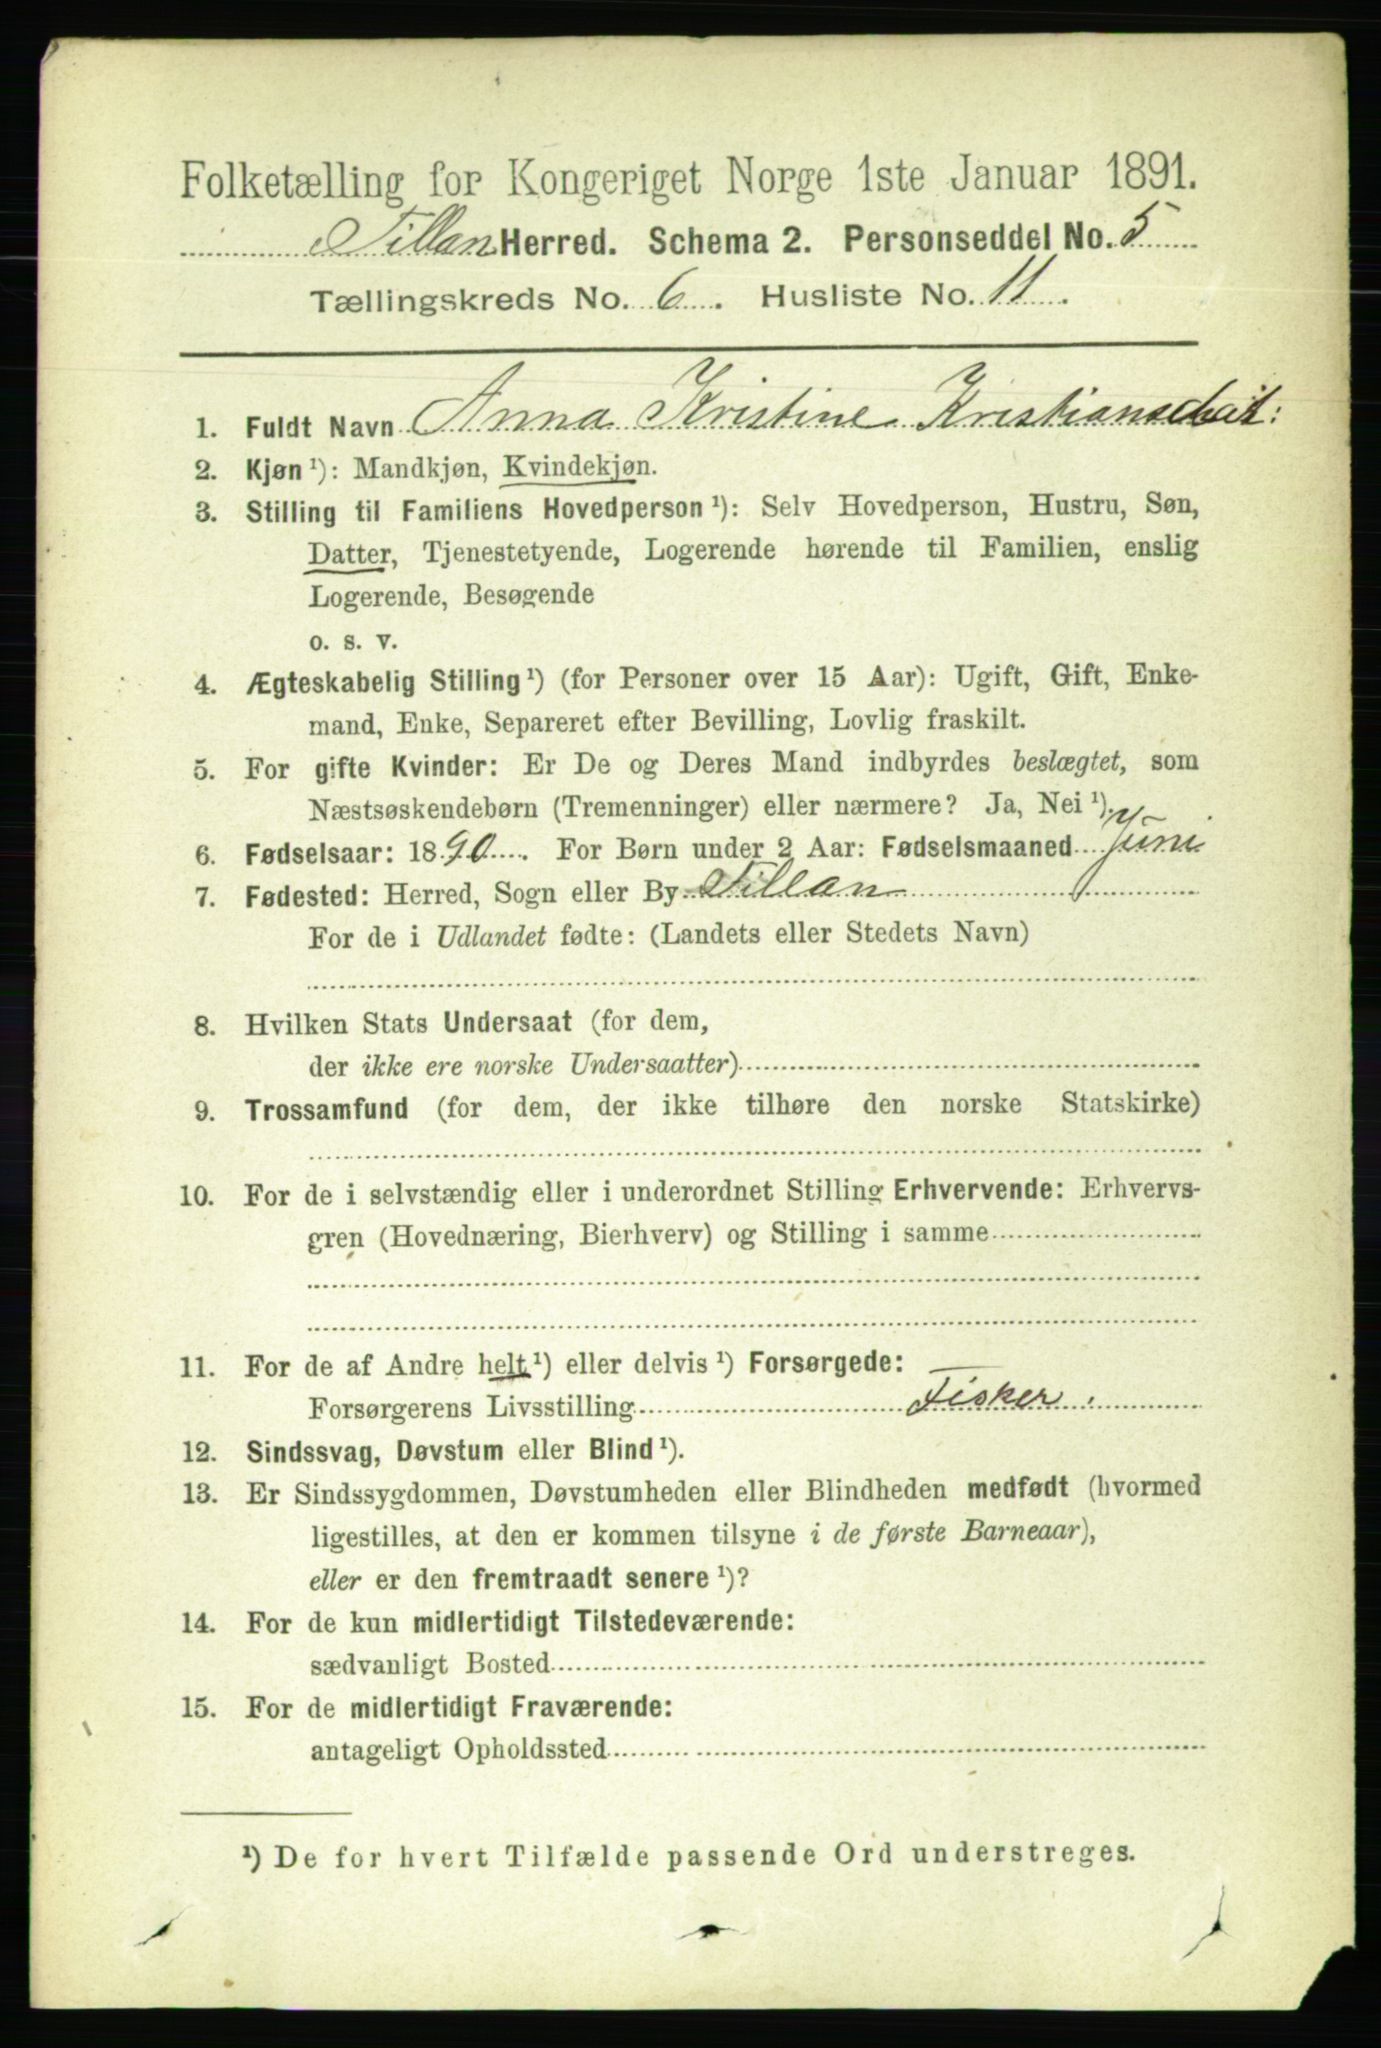 Folketælling for Kongeriget Norge 1ste Januar 1891.
Fillan Herred. Schema 2. Personseddel No. 5
Tællingskreds No. 6. Husliste No. 11.
1. Fuldt Navn Anna Kristine Kristiansdat:
2. Kjøn ¹): Mandkjøn, Kvindekjøn.
3. Stilling til Familiens Hovedperson ¹): Selv Hovedperson, Hustru, Søn,
Datter, Tjenestetyende, Logerende hørende til Familien, enslig
Logerende, Besøgende
o. s. v.
4. Ægteskabelig Stilling ¹) (for Personer over 15 Aar): Ugift, Gift, Enke-
mand, Enke, Separeret efter Bevilling, Lovlig fraskilt.
5. For gifte Kvinder: Er De og Deres Mand indbyrdes beslægtet, som
Næstsøskendebørn (Tremenninger) eller nærmere? Ja, Nei ¹).
6. Fødselsaar: 1890. For Børn under 2 Aar: Fødselsmaaned Juni
7. Fødested: Herred, Sogn eller By Fillan
For de i Udlandet fødte: (Landets eller Stedets Navn)
8. Hvilken Stats Undersaat (for dem,
der ikke ere norske Undersaatter)
9. Trossamfund (for dem, der ikke tilhøre den norske Statskirke)
10. For de i selvstændig eller i underordnet Stilling Erhvervende: Erhvervs-
gren (Hovednæring, Bierhverv) og Stilling i samme
11. For de af Andre helt ¹) eller delvis ¹) Forsørgede:
Forsørgerens Livsstilling Fisker.
12. Sindssvag, Døvstum eller Blind ¹).
13. Er Sindssygdommen, Døvstumheden eller Blindheden medfødt (hvormed
ligestilles, at den er kommen tilsyne i de første Barneaar),
eller er den fremtraadt senere ¹)?
14. For de kun midlertidigt Tilstedeværende:
sædvanligt Bosted
15. For de midlertidigt Fraværende:
antageligt Opholdssted
¹) De for hvert Tilfælde passende Ord understreges.